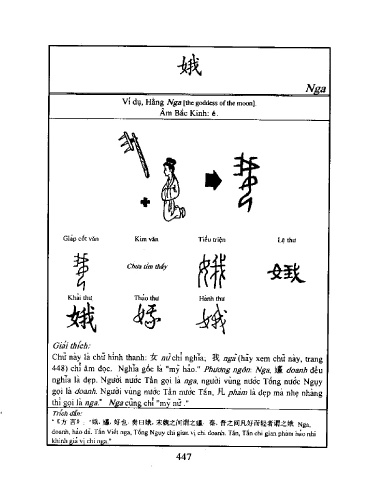 娥
Nga
Ví dụ, Hằng Nga [the goddess of the moon].
Âm Bắc Kinh: é.
Giáp cốt văn Kim văn Tiểu triện Lệ thư
Chưa tìm thấy
Khải thư Thảo thư Hành thư
Giải thích:
Chữ này là chữ hình thanh: 女 nữ chỉ nghĩa, 我 ngã (hãy xem chữ này, trang
448) chỉ âm đọc. Nghĩa gốc là "mỹ hảo." Phương ngôn: Nga, 㜲 doanh đều
nghĩa là đẹp. Người nước Tần gọi là nga, người vùng nước Tống nước Ngụy
gọi là doanh. Người vùng nước Tần nước Tấn, phàm là đẹp mà nhẹ nhàng
thì gọi là nga." Nga cũng chỉ "mỹ nữ."
Trích dẫn:
"《方言》. "娥, 㜲, 好也. 秦曰娥, 宋魏之间谓之㜲. 秦, 晋之间凡好而轻者谓之娥 Nga,
doanh, hảo dã. Tần Viết nga, Tống Ngụy chi gian vị chi doanh. Tần, Tấn chi gian phàm hảo nhi
khinh giả vị chi nga."
447